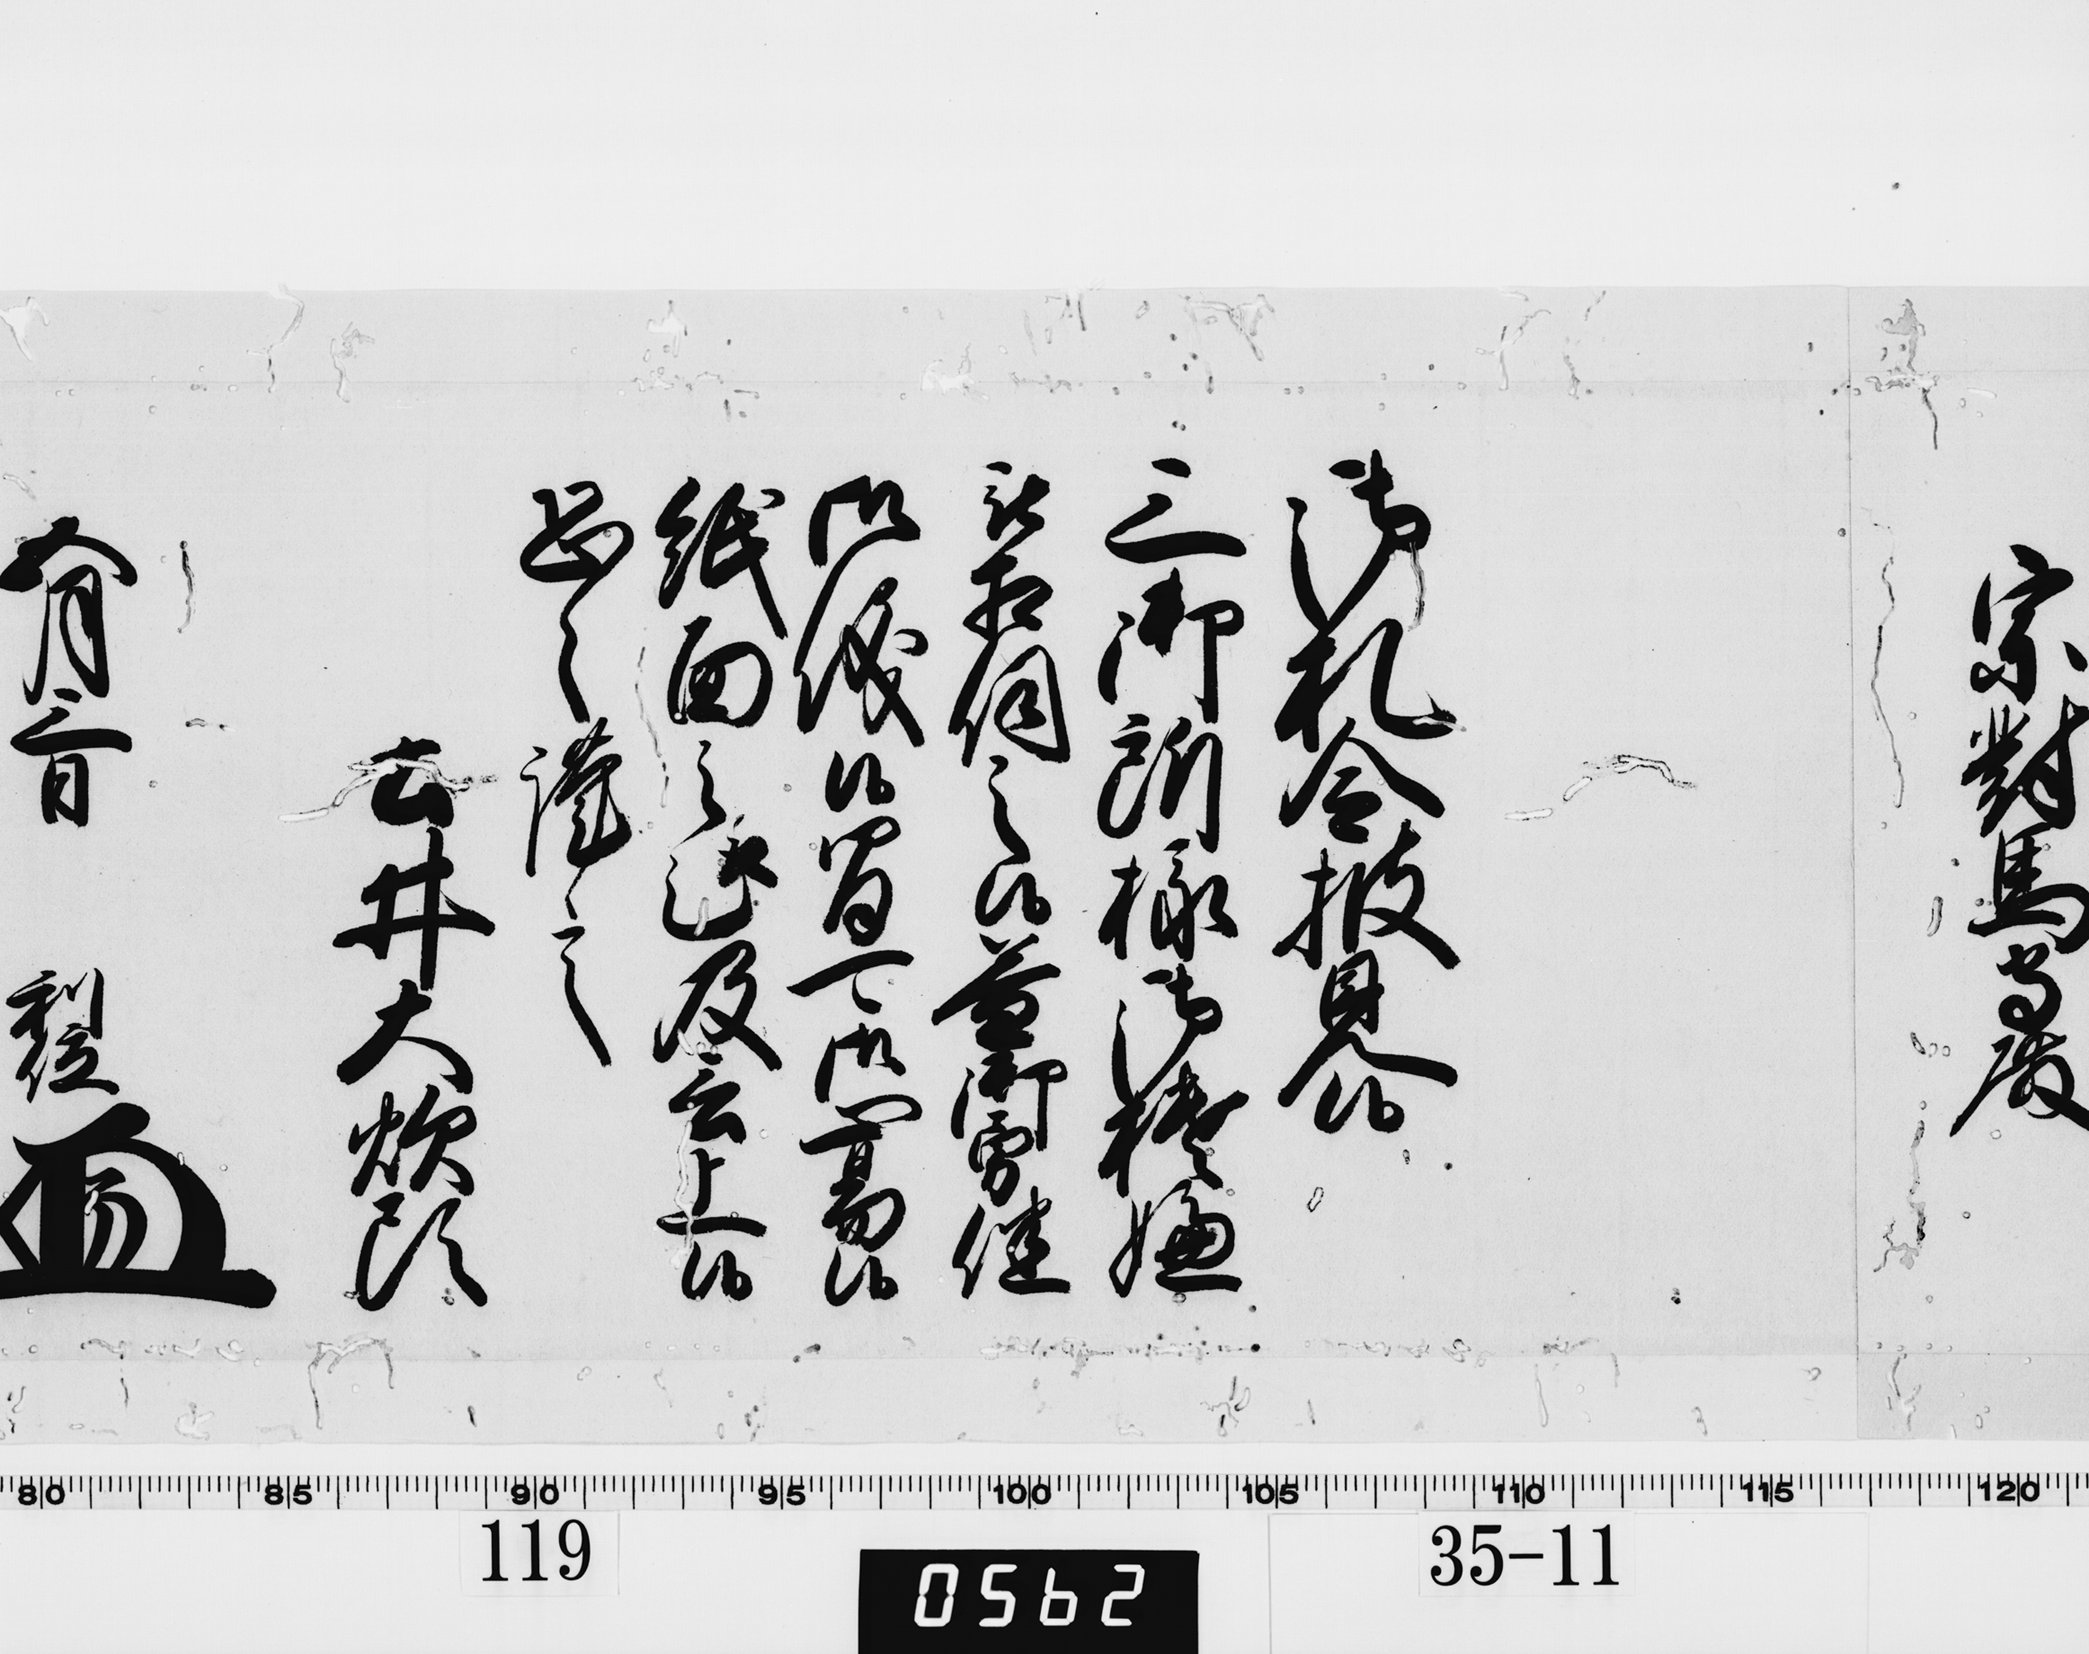 宗對馬守殿
御札令披見候
三御所様御機嫌
被相伺之候益御勇健
御儀候間可御心易候
紙面之趣及言上候
恐々謹言
土井大炊頭
六月三日 利位
80 85 90 95 100 105 110 115 120
119
0562
35-11